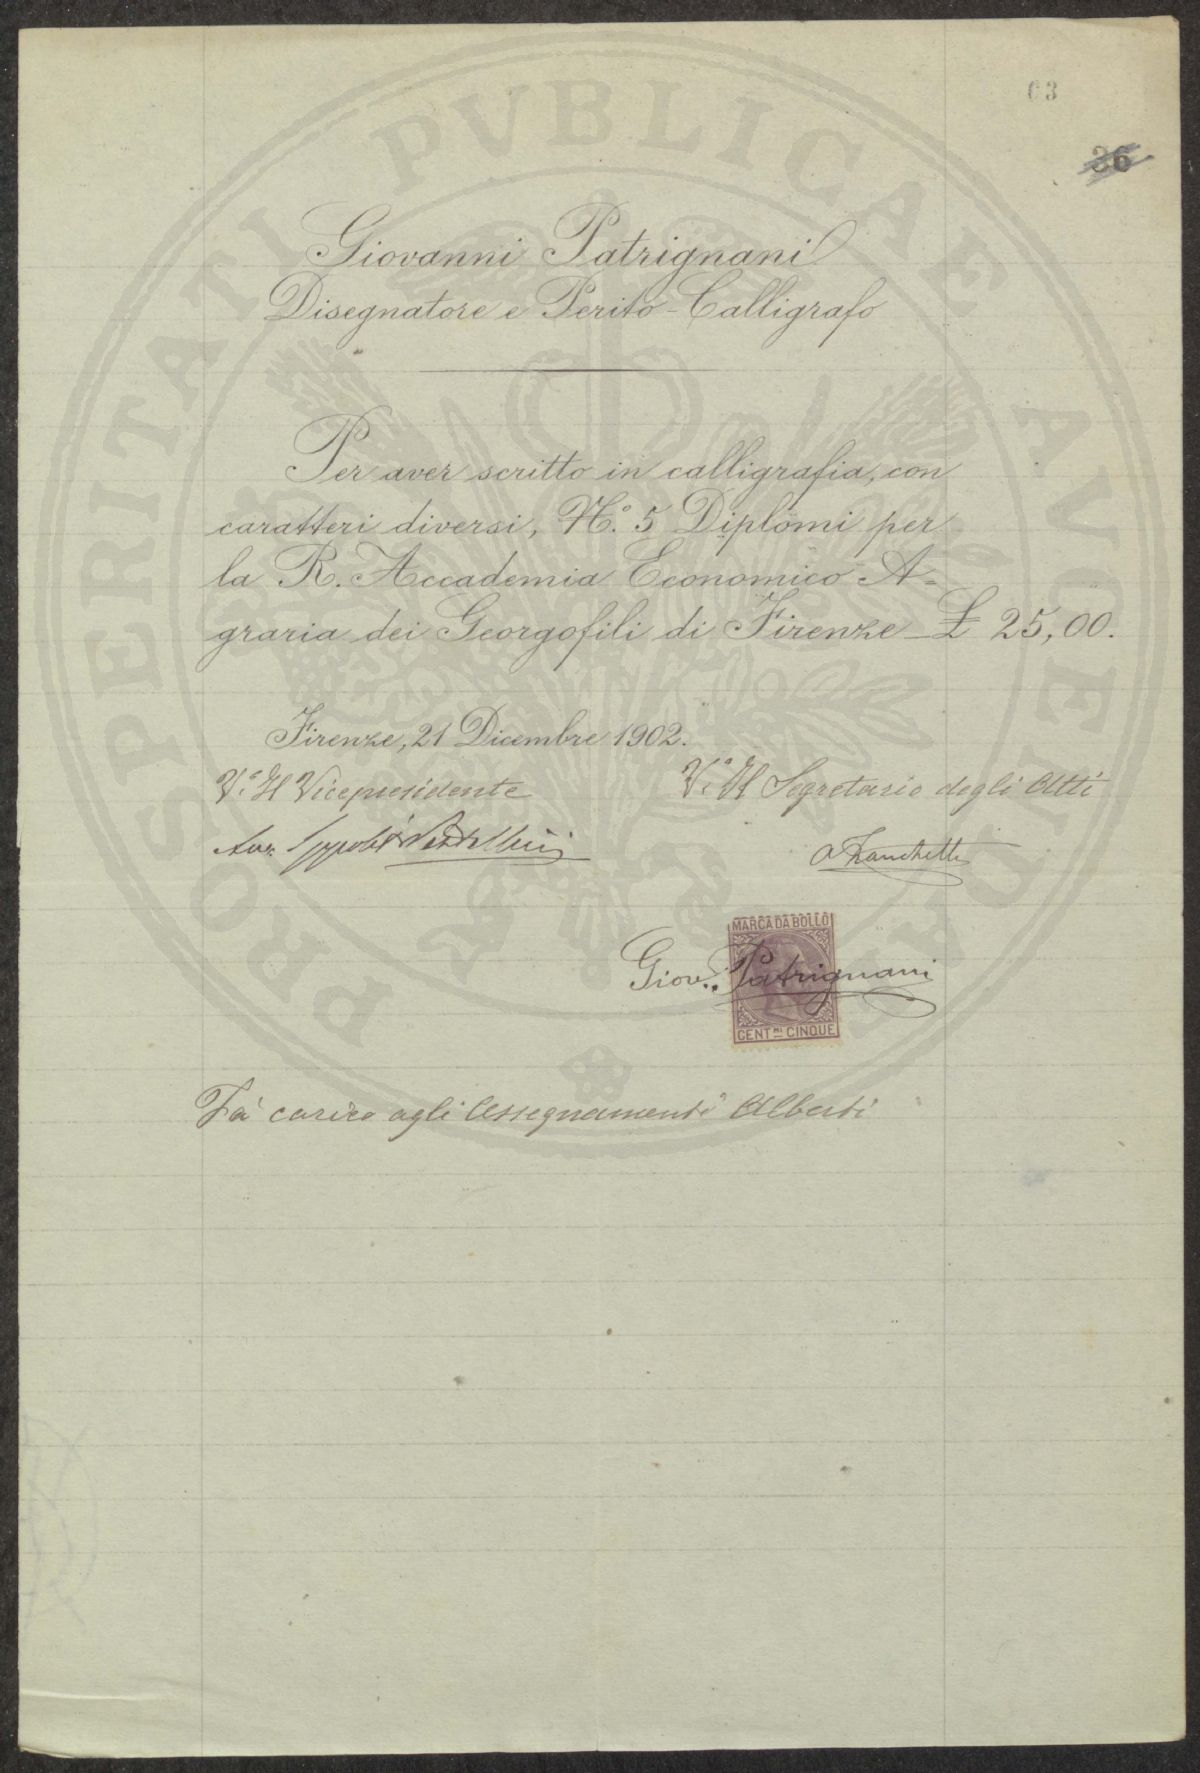 PROSPERITATI PVBLICAE AVGENDAE
63
36
Giovanni Patrignani
Disegnatore e Perito-Calligrafo
Per aver scritto in calligrafia, con
caratteri diversi, N.° 5 Diplomi per
la R. Accademia Economico-A=
graria dei Georgofili di Firenze_£ 25,00.
Firenze, 21 Dicembre 1902.
V.° Il Vicepresidente
V.° Il Segretario degli Atti
Avv.
MARCA DA BOLLO
Giov. Patrignani
CENT.MI CINQUE
Fa' carico agli Assegnamenti Alberti